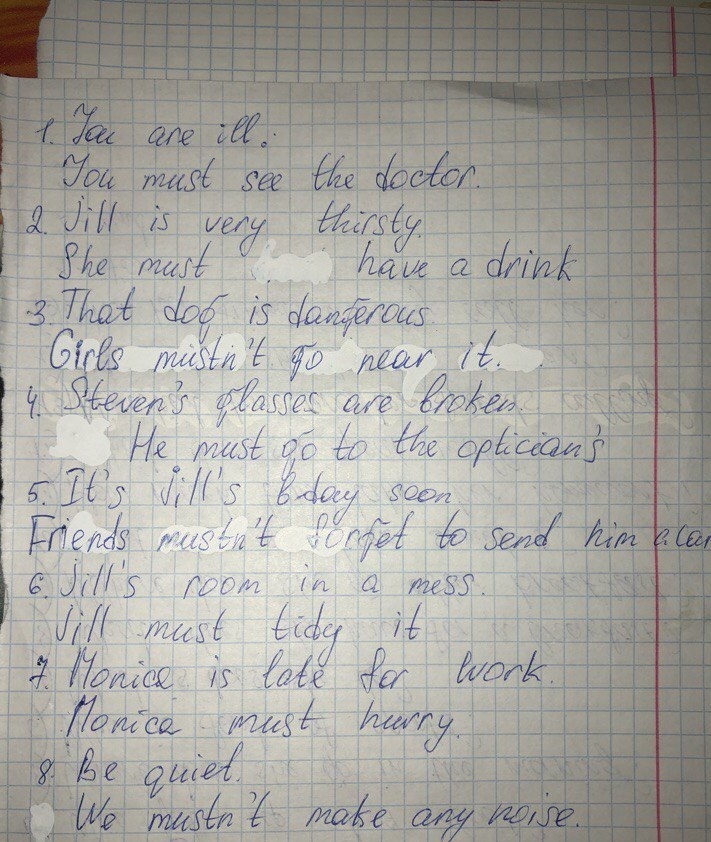 1. You are ill.
You must see the doctor.
2. Jill is very thirsty.
She must have a drink
3. That dog is dangerous.
Girls mustn't go near it.
4. Steven's glasses are broken.
He must go to the optician's
5. It's Jill's b-day soon
Friends mustn't forget to send him a car
6. Jill's room in a mess.
Jill must tidy it
7. Monica is late for work.
Monica must hurry.
8. Be quiet.
We mustn't make any noise.